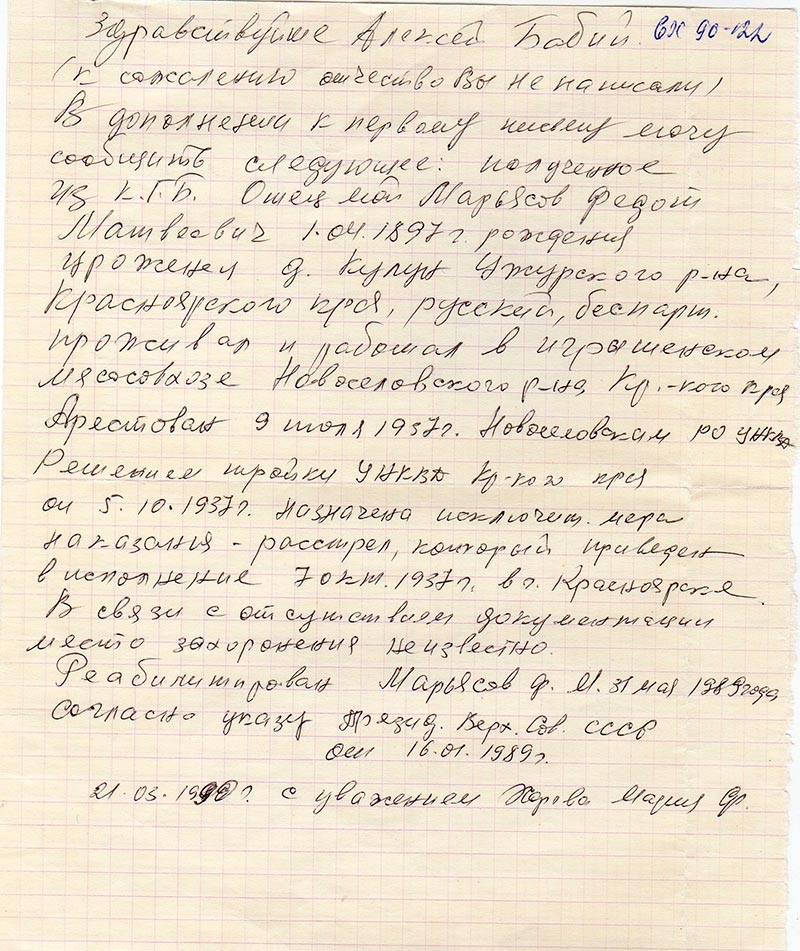 Здравствуйте Алексей Бабий. вх 90-122
(к сожалению отчество Вы не написали)
В дополнении к первому письму могу
сообщить следующее: полученное
из К.Г.Б. Отец мой Марьясов Федот
Матвеевич 1.04.1897г. рождения
уроженец д. Кулун Ужурского р-на,
Красноярского края, русский, беспарт.
проживал и работал в игрышенском
мясосовхозе Новоселовского р-на Кр.-кого края
Арестован 9 июля 1937г. Новоселовским РО УНКВД
Решением тройки УНКВД Кр-кого края
от 5.10.1937г. назначена исключит. мера
наказания - расстрел, который приведен
в исполнение 7 окт. 1937г. в г. Красноярске.
В связи с отсутствием документации
место захоронения неизвестно.
Реабилитирован Марьясов Ф. М. 31 мая 1989 года
согласно указу Презид. Верх. Сов. СССР
от 16.01.1989г.
21.03.1990г. с уважением Мария Ф.